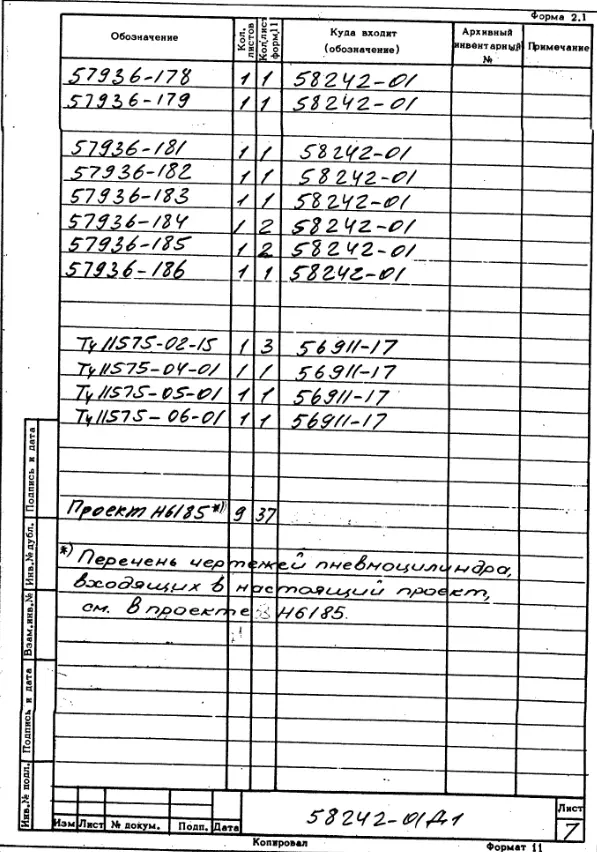 Форма 2.1
Обозначение Кол. листов Кол. лист форм.11 Куда входит (обозначение) Архивный инвентарный № Примечание
57936-178 1 1 58242-01
57936-179 1 1 58242-01
57936-181 1 1 58242-01
57936-182 1 1 58242-01
57936-183 1 1 58242-01
57936-184 1 2 58242-01
57936-185 1 2 58242-01
57936-186 1 1 58242-01
Ту11575-02-15 1 3 56911-17
Ту11575-04-01 1 1 56911-17
Ту11575-05-01 1 1 56911-17
Ту11575-06-01 1 1 56911-17
Проект Н6185*) 9 37
*) Перечень чертежей пневмоцилиндра,
входящих в настоящий проект,
см. в проекте Н6185.
Инв.№ подл. Подпись и дата Взам.инв.№ Инв.№ дубл. Подпись и дата
Изм Лист № докум. Подп. Дата
58242-01Д1
Лист
7
Копировал Формат 11